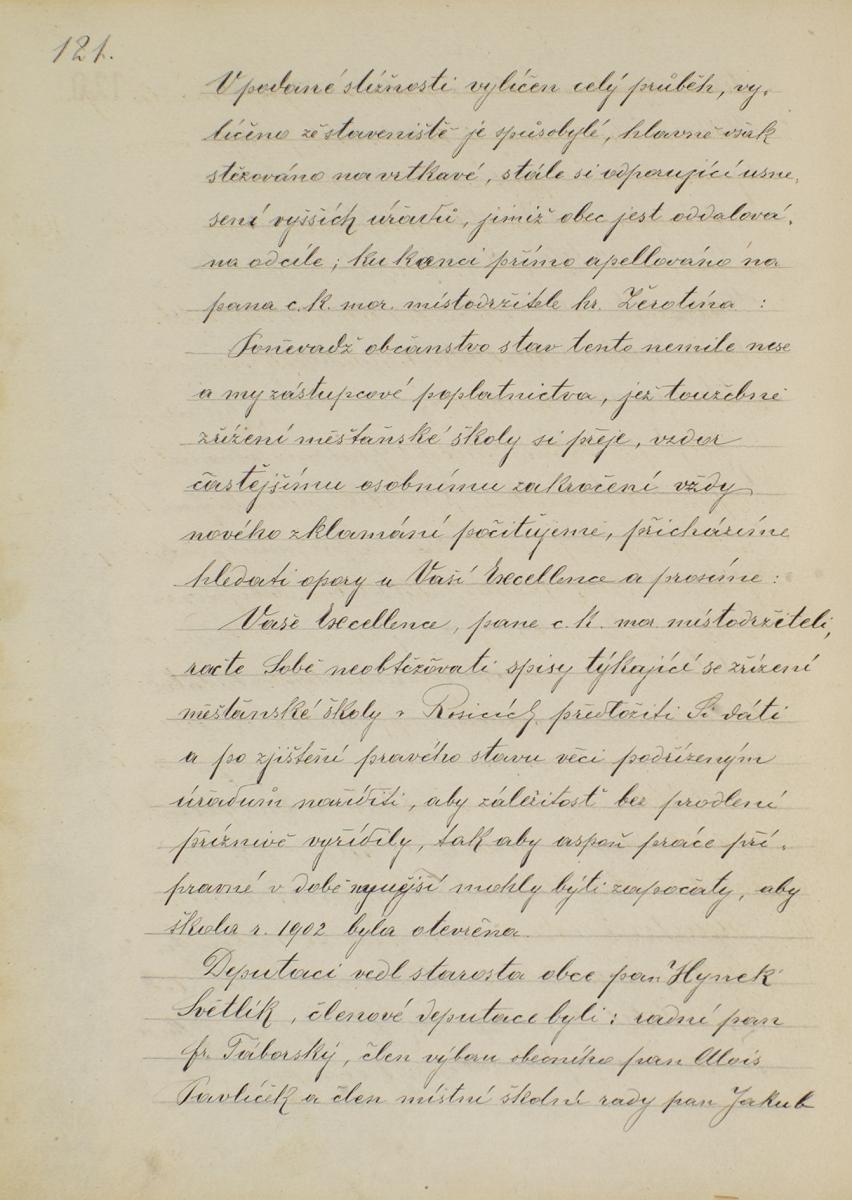 121.
V podané stížnosti vylíčen celý průběh, vy-
líčeno že staveniště je spůsobylé, hlavně však
stěžováno na vrtkavé, stále si odporující usne-
sení vyšších úřadů, jimiž obec jest oddalová-
na od cíle; ku kanci přímo apellováno na
pana c. k. mor. místodržitele hr. Žerotína :
Poněvadž občanstvo stav tento nemile nese
a my zástupcové poplatnictva, jež toužebně
zřízení měšťanské školy si přeje, vzdor
častějšímu osobnímu zakročení vždy
nového zklamání pociťujeme, přicházíme
hledati opory u Vaší Excellence a prosíme :
Vaše Excellence, pane c. k. mor místodržiteli,
račte Sobě neobtěžovati spisy týkající se zřízení
měšťanské školy v Rosicích předložiti Si dáti
a po zjištění pravého stavu věci podřízeným
úřadům naříditi, aby záležitosť bez prodlení
příznivě vyřídily, tak aby aspoň práce pří-
pravné v době nynější mohly býti započaty, aby
škola r. 1902 byla otevřena.
Deputaci vedl starosta obce pan Hynek
Světlík, členové deputace byli : radní pan
fr. Táborský, člen výboru obecního pan Alois
Pavlíček a člen místní školní rady pan Jakub